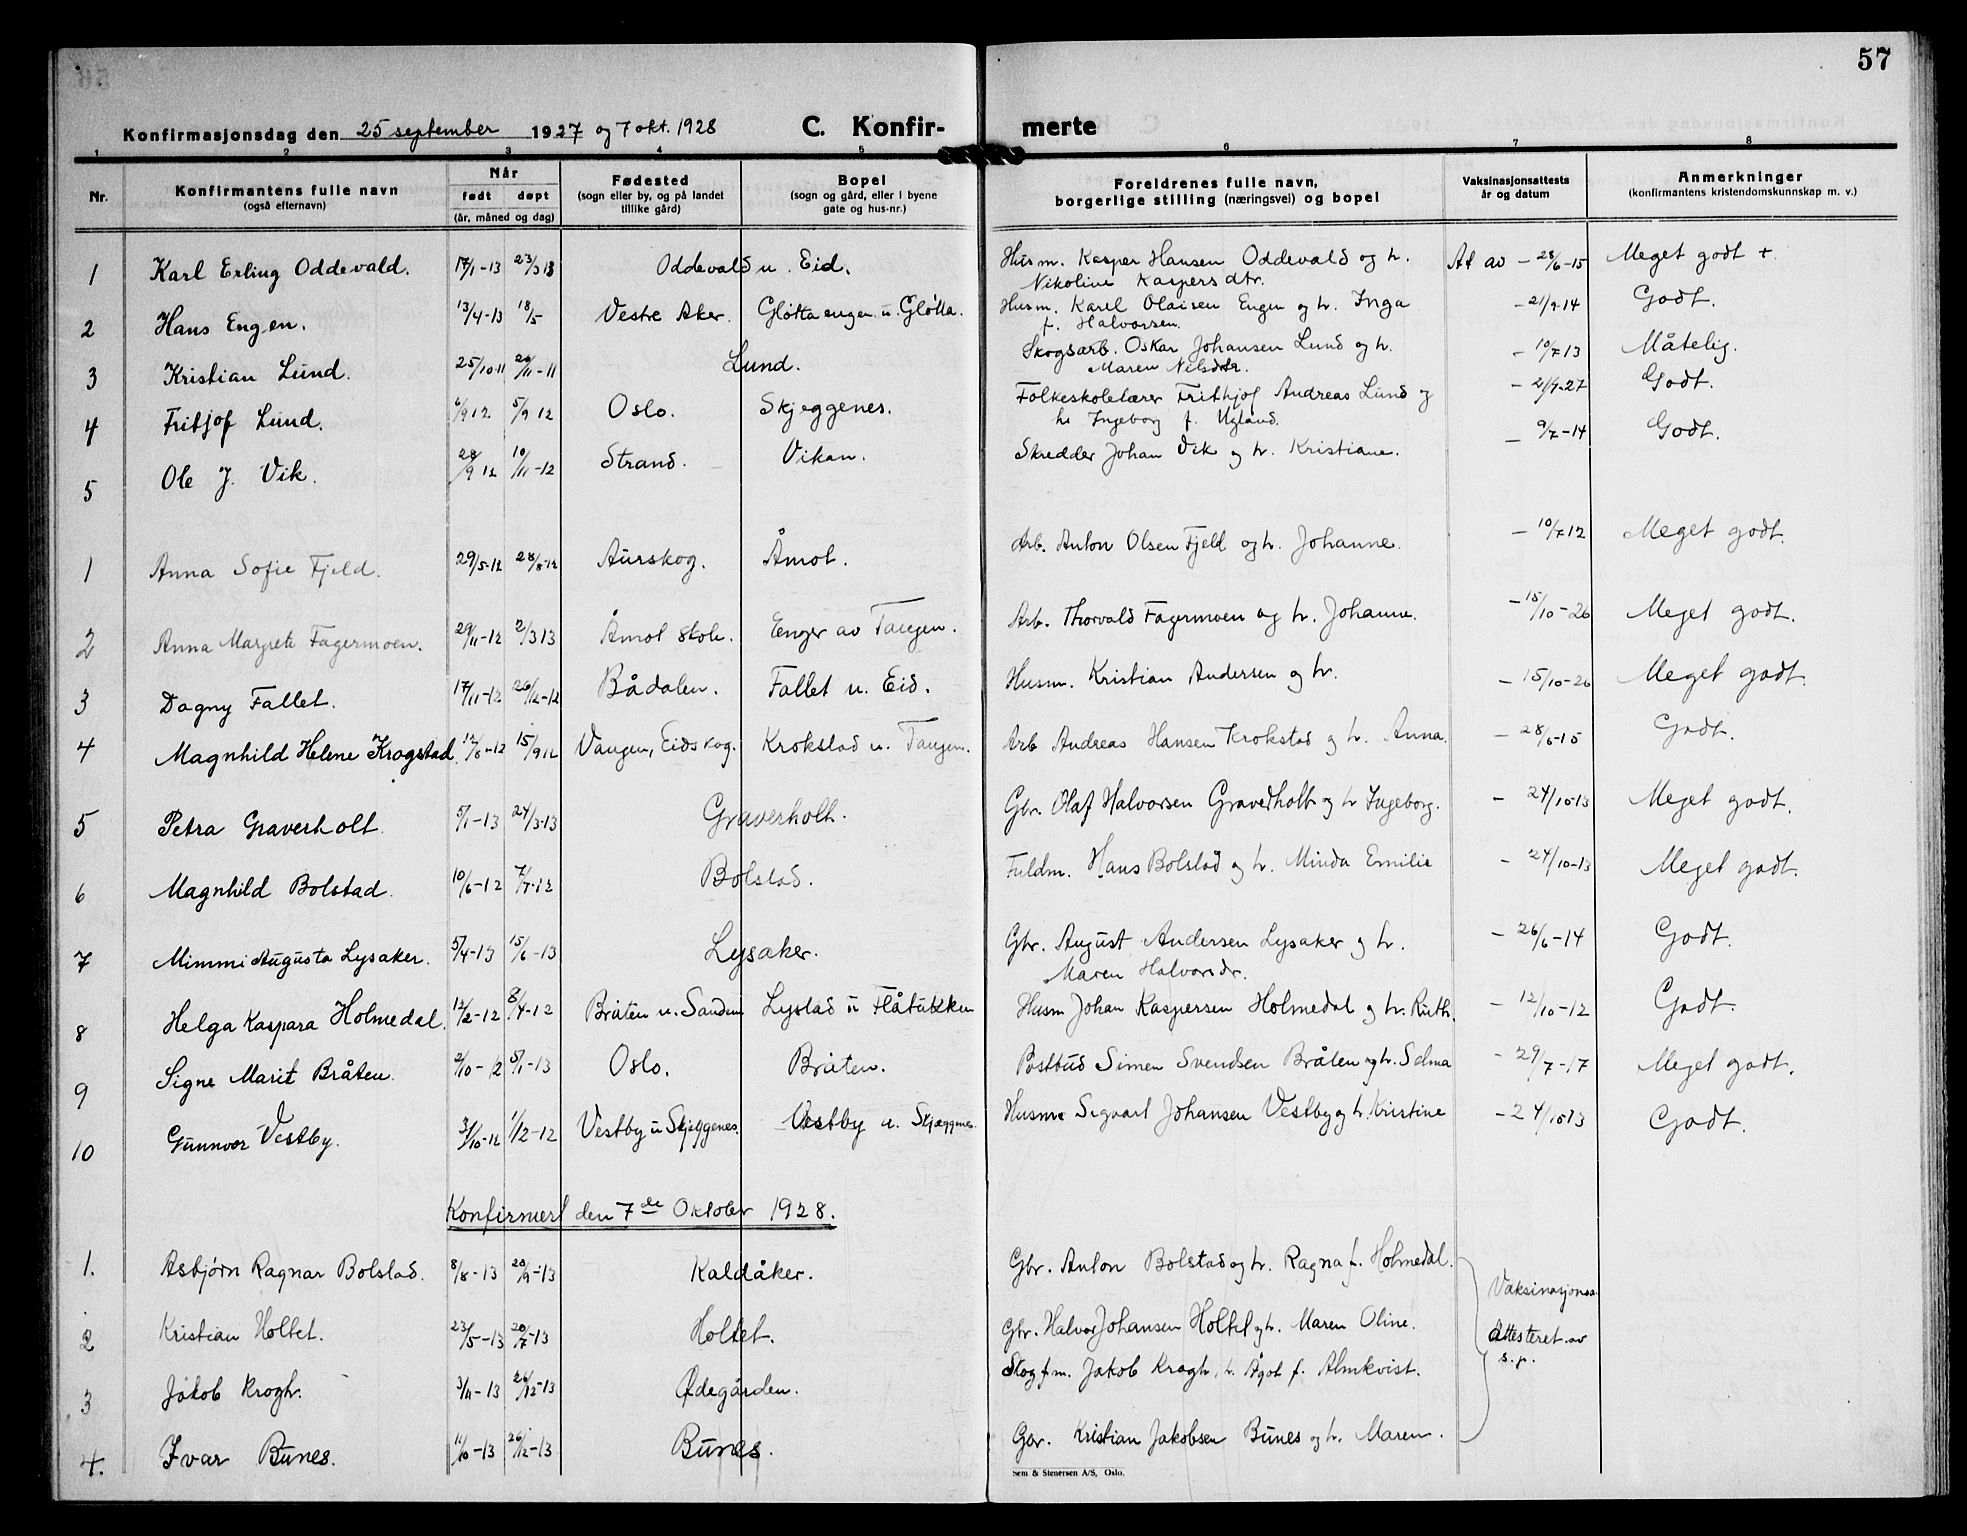 57
Konfirmasjonsdag den 25 september 1927 og 7 okt. 1928 C. Konfir- merte
1 2 3 4 5 6 7 8
Nr. Konfirmantens fulle navn (også efternavn) Når født døpt (år, måned og dag) Fødested (sogn eller by, og på landet tillike gård) Bopel (sogn og gård, eller i byene gate og hus-nr.) Foreldrenes fulle navn, borgerlige stilling (næringsvei) og bopel Vaksinasjonsattests år og datum Anmerkninger (konfirmantens kristendomskunnskap m. v.)
1 Karl Erling Oddevald. 17/1-13 23/3 13 Oddevald u. Eid. Husm. Kasper Hansen Oddevald og h. Nikoline Kaspersdtr. At av - 28/6-15 Meget godt +
2 Hans Engen. 13/4-13 18/5 Vestre Aker. Gløtta engen u. Gløtta. Husm. Karel Olaisen Engen og h. Inga f. Halvorsen. - 21/9-14 Godt.
3 Kristian Lund. 25/10-11 26/11-11 Lund. Skogsarb. Oskar Johansen Lund og h. Maren Nilsdtr. - 10/7 13 Måtelig.
4 Fritjof Lund. 6/9 12 5/9 12 Oslo. Skjeggenes. Folkeskolelærer Frithjof Andreas Lund og h. Ingeborg f. Ugland. - 21/9-27 Godt.
5 Ole J. Vik. 28/9 12 10/11-12 Strand. Vikan. Skredder Johan Vik og h. Kristiane. - 9/7-14 Godt.
1 Anna Sofie Fjeld. 29/5-12 28/8-12 Aurskog. Åmot. Arb. Anton Olsen Fjeld og h. Johanne. - 10/7 12 Meget godt.
2 Anna Margrete Fagermoen. 29/11-12 2/3 13 Åmot skole. Enger av Tangen. Arb. Thorvald Fagermoen og h. Johanne. - 15/10-26 Meget godt.
3 Dagny Fallet. 17/11-12 26/12-12 Bådalen. Fallet u. Eid. Husm. Kristian Andersen og h. - 15/10-26 Meget godt.
4 Magnhild Helene Krogstad. 12/8-12 15/9 12 Vangen, Eidskog. Krokstad u. Tangen. Arb Andreas Hansen Krokstad og h. Anna. - 28/6-15 Godt.
5 Petra Graverholt. 5/1-13 24/3-13 Graverholt. Gbr. Olaf Halvorsen Graverholt og h Ingeborg. - 24/10-13 Meget godt.
6 Magnhild Bolstad. 10/6-12 7/7-12 Bolstad. Fuldm. Hans Bolstad og h. Minda Emilie - 24/10-13 Meget godt.
7 Mimmi Augusta Lysaker. 5/4-13 15/6-13 Lysaker. Gbr. August Andersen Lysaker og h. Maren Halvorsdr. - 26/6-14 Godt.
8 Helga Kaspara Holmedal. 12/2-12 8/4-12 Bråten u. Sanden Lystad u Husm Johan Kaspersen Holmedal og h. Ruth. - 12/10-12 Godt.
9 Signe Marit Bråten. 2/10-12 5/1-13 Oslo. Bråten. Postbud Simen Svendsen Bråten og h. Selma - 29/7-17 Meget godt.
10 Gunnvor Vestby. 3/10-12 1/12-12 Vestby u Skjeggenes. Vestby u. Skjæggnes. Husm Sigvart Johansen Vestby og h. Kristine - 24/10 13 Godt.
Konfirmert den 7de Oktober 1928.
1. Asbjørn Ragnar Bolstad. 8/8-13 20/9-13 Kaldåker. Gbr. Anton Bolstad og h. Ragna f. Holmedal. Vaksinasjonen attesteret av s.p.
2 Kristian Holtet. 23/5-13 20/7-13 Holtet. Gbr. Halvor Johansen Holtet og h. Maren Oline.
3 Jakob Krogh. 3/11-13 26/12-13 Ødegården. Skogfm. Jakob Krogh, h. Ågot f. Almkvist.
4. Ivar Bunes. 11/10-13 26/12-13 Bunes. Gbr. Kristian Jakobsen Bunes og h. Maren.
Sem & Stenersen A/S, Oslo.